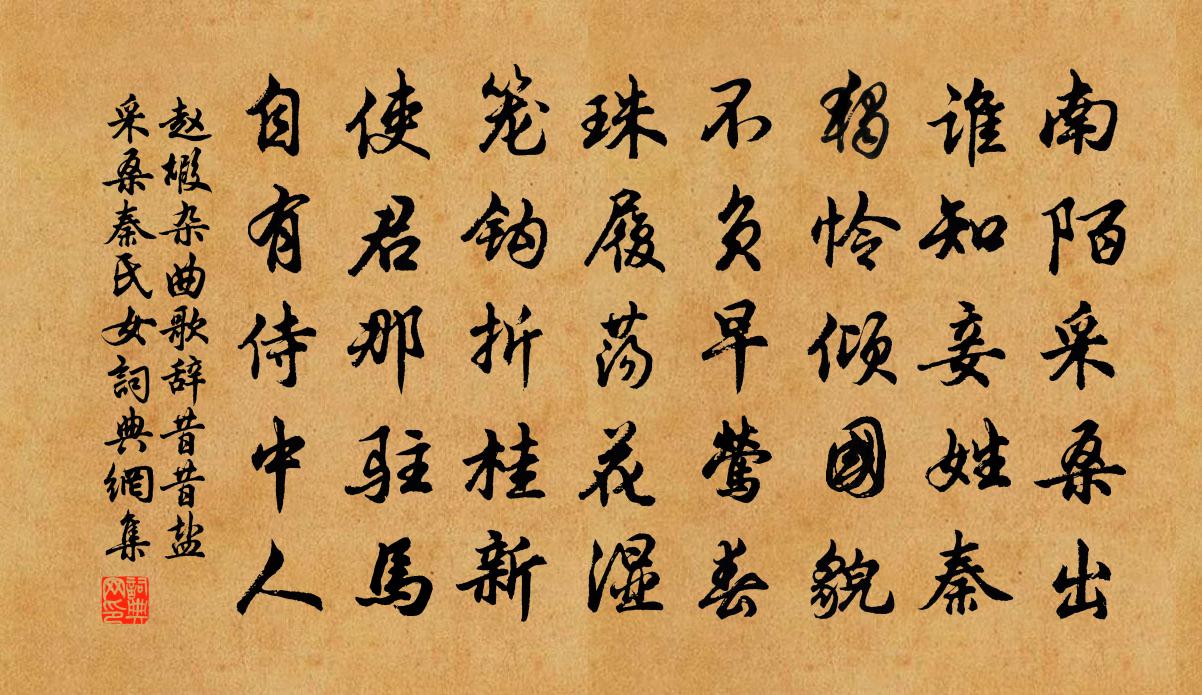 南陌采桑出
谁知妾姓秦
独怜倾國貌
不负早莺春
珠履荡花湿
笼钩折桂新
使君那驻馬
自有侍中人
赵嘏杂曲歌辞昔昔盐
采桑秦氏女詞典網集
詞典
网印